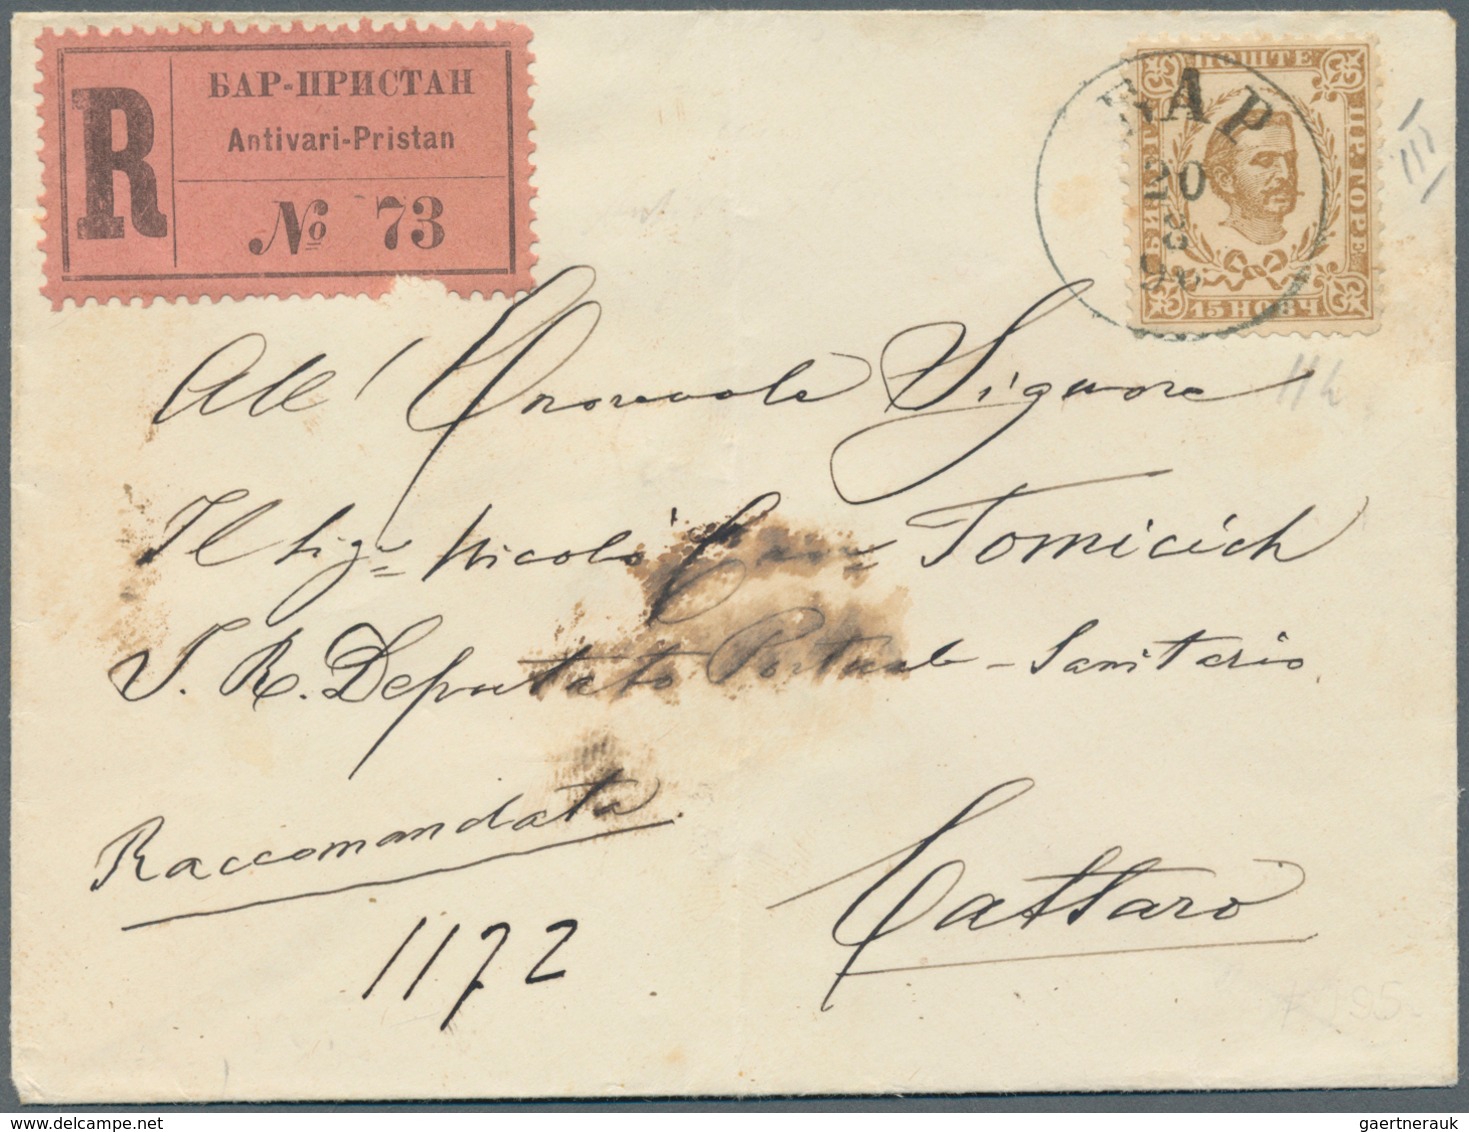 БАР-ПРИСТАН
Antivari-Pristan
R
№ 73
БАР
20
ПОШТЕ
ЦР. ГОРЕ
15 НОВЧ
III
All' Onorevole Signore
Il Sigr Nicolò Tomicich
I. R. Deputato Portuale-Sanitario
Raccomandata
1172
Cattaro
195
gaertnerauk